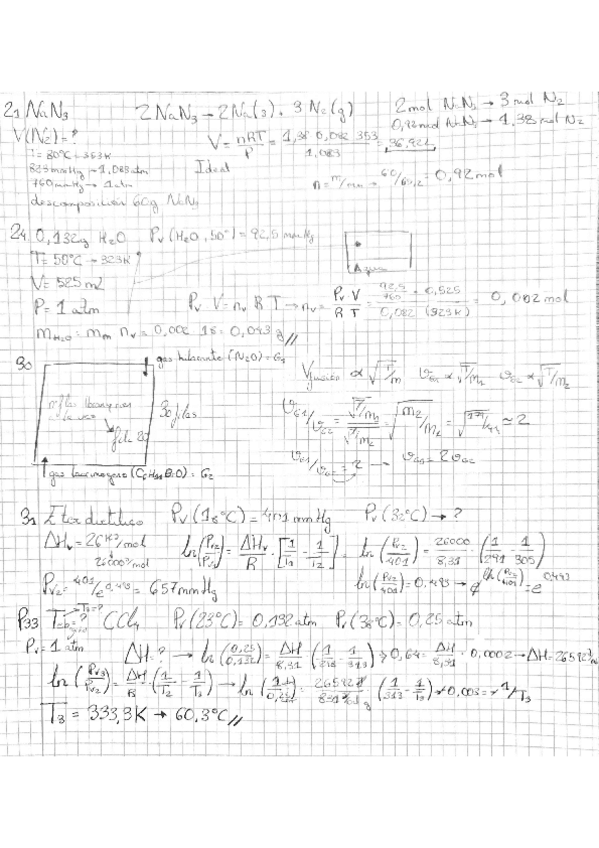 21 NaN3 2NaN3 → 2Na(s) + 3N2(g) 2mol NaN3 → 3 mol N2
V(N2) = ? V = nRT/P = 1,38 0,082 353/1,083 = 36,92L 0,92mol NaN3 → 1,38 mol N2
T = 80°C + 353K
825mmHg → 1,083atm Ideal
760mmHg → 1 atm n = m/mm = 60/65,2 = 0,92 mol
descomposición 60g NaN3
24. 0,132g H2O Pv (H2O, 50°) = 92,5 mmHg
T = 50°C → 323K
V = 525 mL Agua
P = 1 atm Pv V = nv R T → nv = Pv V/R T = 92,5/760 · 0,525/0,082 (323K) = 0,002 mol
mH2O = mm nv = 0,002 18 = 0,043 g//
30 gas hilarante (N2O) = G1
Vfusión ∝ √T/m vG1 ∝ √T/m1 vG2 ∝ √T/m2
30 filas
fila 20
vG1/vG2 = √T/m1/√T/m2 = √m2/m1 = √ ≃ 2
vG1/vG2 = 2 → vG1 = 2vG2
gas lacrimógeno (C6H11BrO) = G2
31 Eter dietílico Pv (18°C) = 401 mmHg Pv (32°C) → ?
ΔHv = 26 KJ/mol ln (Pv2/Pv1) = ΔHv/R · [1/T1 - 1/T2] = ln (Pv2/401) = 26000/8,31 · (1/291 - 1/305)
26000J/mol
Pv2 = 401/e^0,493 = 657mmHg ln (Pv2/401) = 0,493 → e^ln(Pv2/401) = e^0,493
P33 Tb = ? CCl4 Pv (23°C) = 0,132 atm Pv (38°C) = 0,25 atm
Pv = 1 atm ΔH = ? → ln (0,25/0,132) = ΔH/8,31 (1/ - 1/313) → 0,64 = ΔH/8,31 · 0,0002 → ΔH = 26592
ln (Pv3/Pv2) = ΔH/R · (1/T2 - 1/T3) → ln (1/0,25) = 26592/8,31 (1/313 - 1/T3) 0,003 = 1/T3
T3 = 333,3K → 60,3°C//